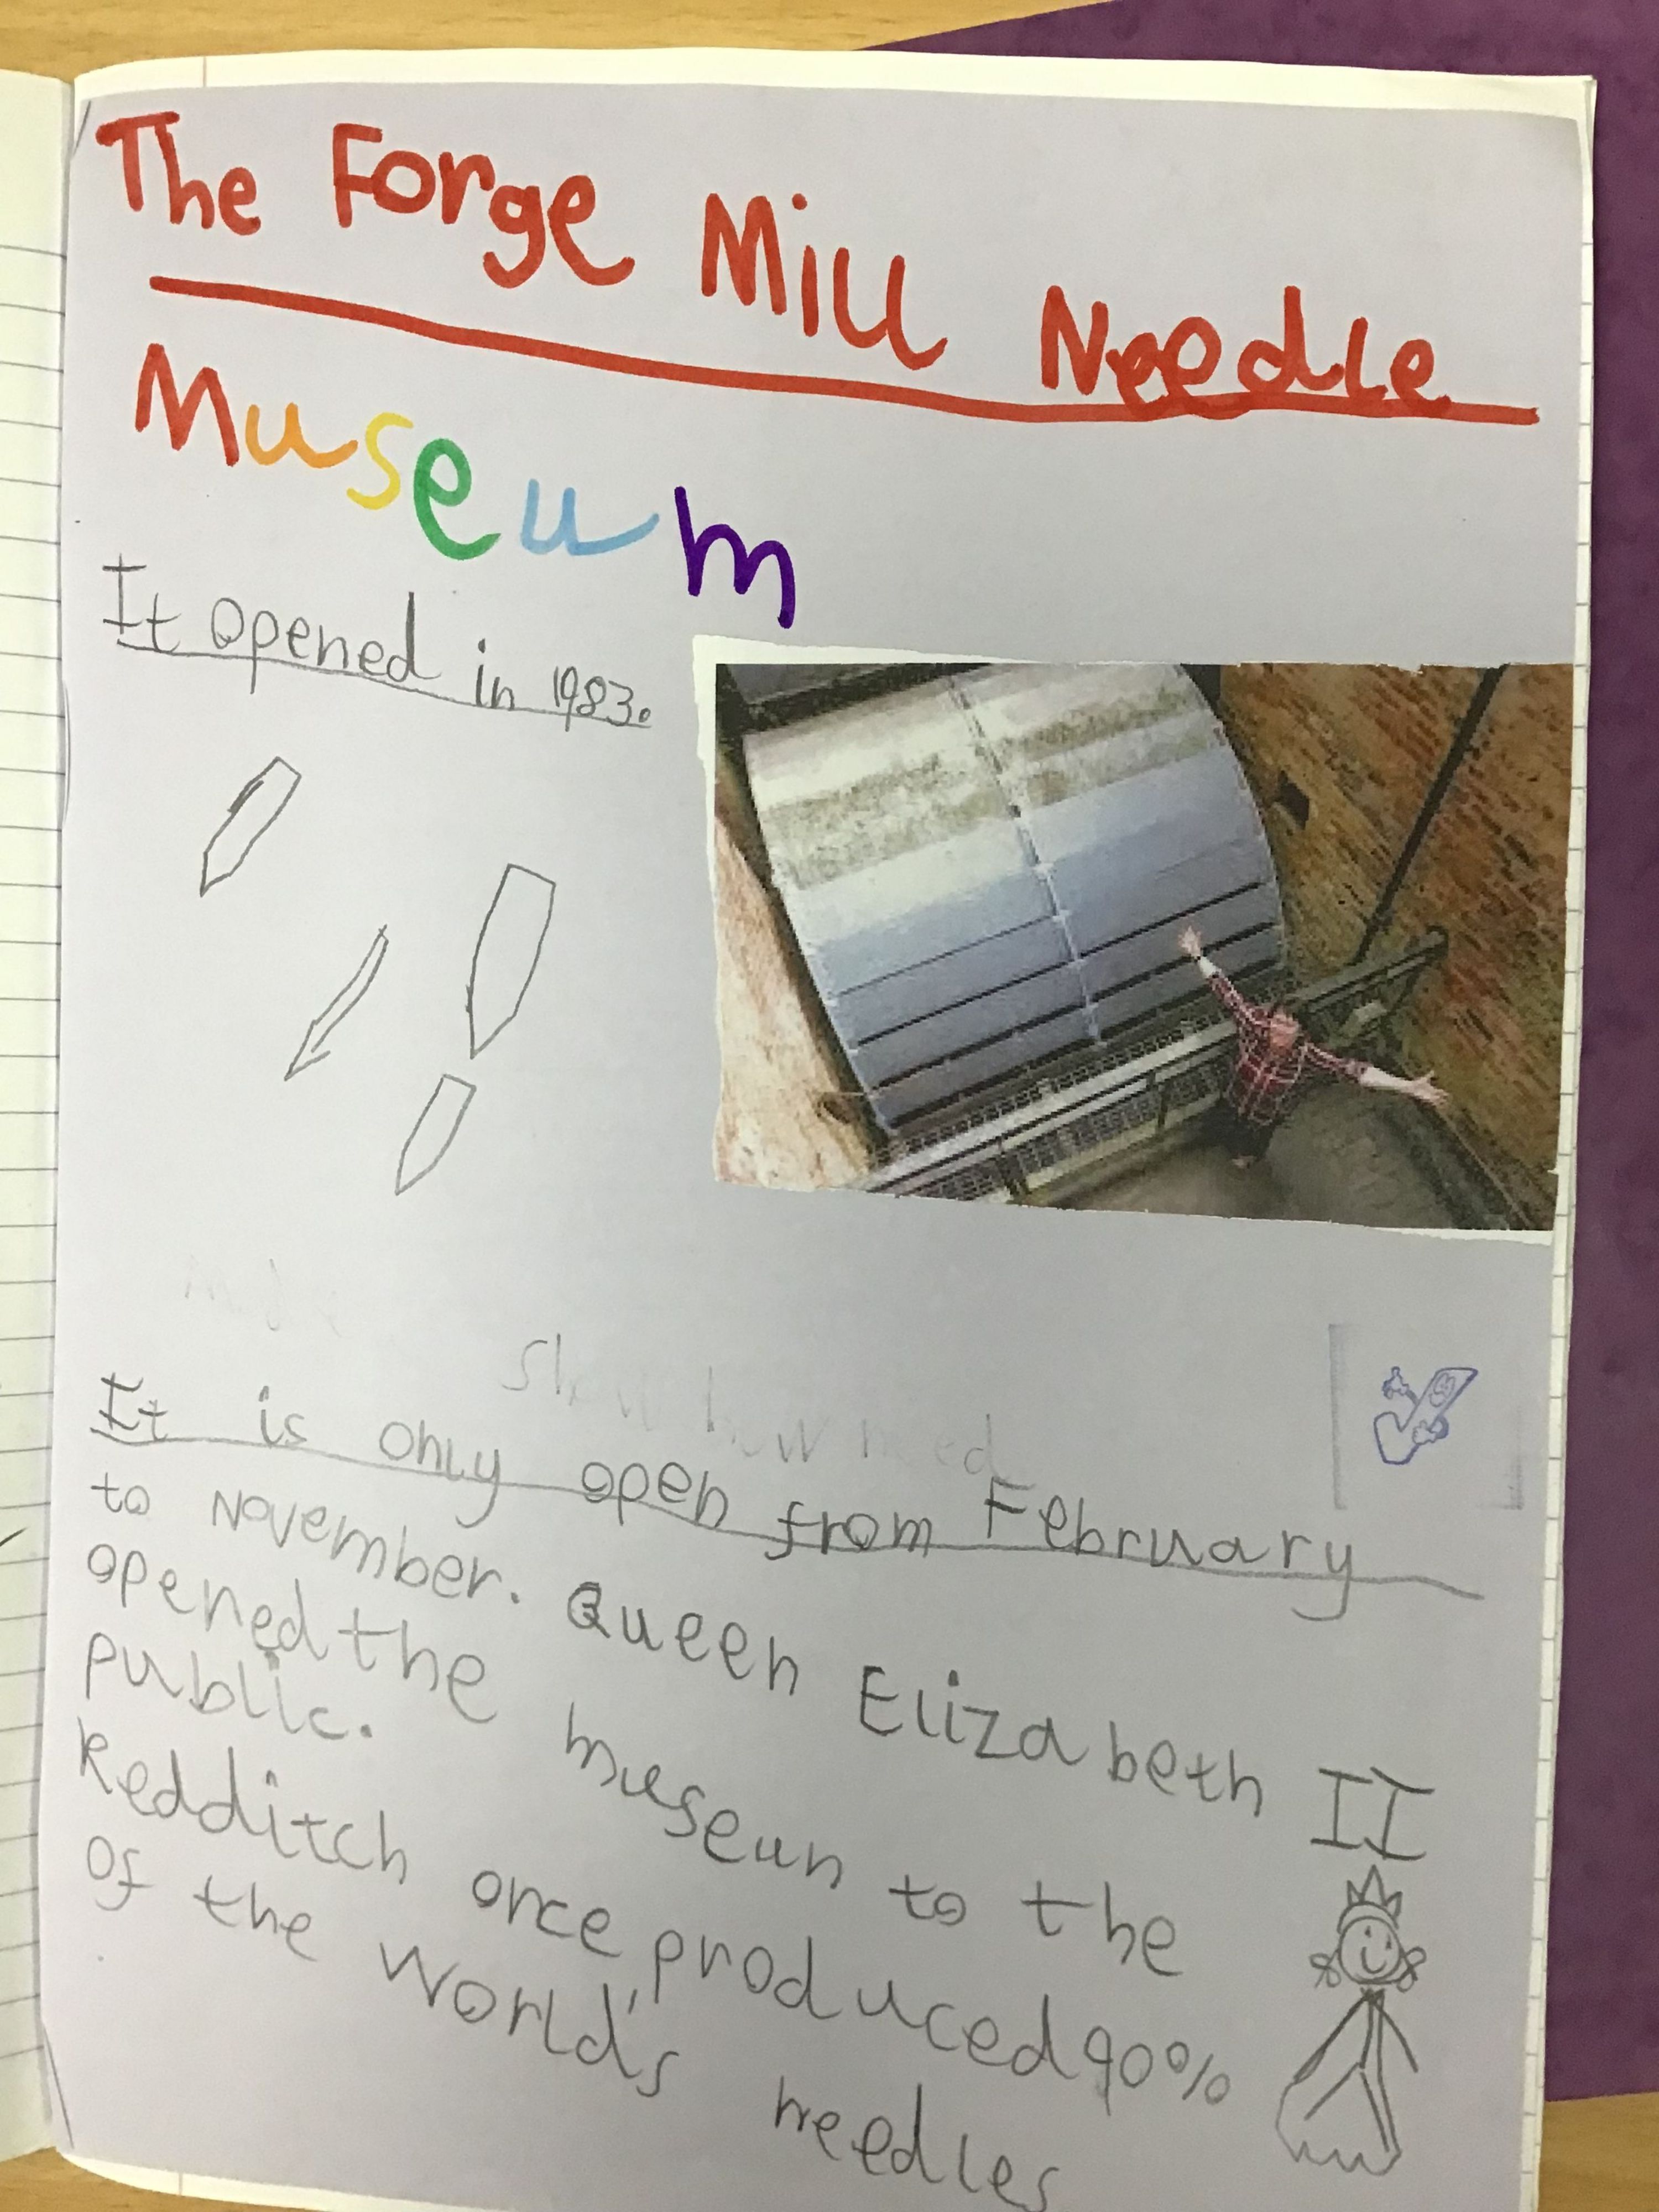 The Forge Mill Needle
Museum
It opened in 1983.
Show how need
It is only open from February
to November. Queen Elizabeth II
opened the museum to the
public.
Redditch once produced 90%
of the world's needles